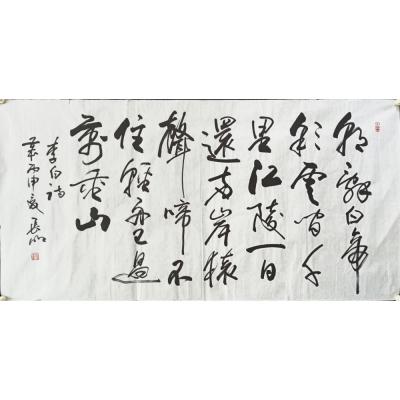 朝辭白帝
彩雲間千
里江陵一日
還兩岸猿
聲啼不
住輕舟已過
萬重山
李白詩
丙申夏